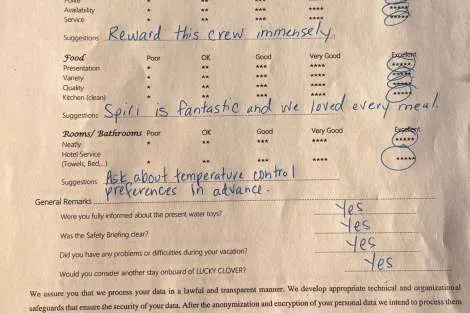 Availability * ** *** **** *****
Service * ** *** **** *****
Suggestions Reward this crew immensely.
Food Poor OK Good Very Good Excellent
Presentation * ** *** **** *****
Variety * ** *** **** *****
Quality * ** *** **** *****
Kitchen (clean) * ** *** **** *****
Suggestions Spiri is fantastic and we loved every meal.
Rooms/ Bathrooms Poor OK Good Very Good Excellent
Neatly * ** *** **** *****
Hotel Service
(Towels, Bed,...) * ** *** **** *****
Suggestions Ask about temperature control
preferences in advance.
General Remarks
Were you fully informed about the present water toys? Yes
Was the Safety Briefing clear? Yes
Did you have any problems or difficulties during your vacation? Yes
Would you consider another stay onboard of LUCKY CLOVER? Yes
We assure you that we process your data in a lawful and transparent manner. We develop appropriate technical and organizational
safeguards that ensure the security of your data. After the anonymization and encryption of your personal data we intend to process them